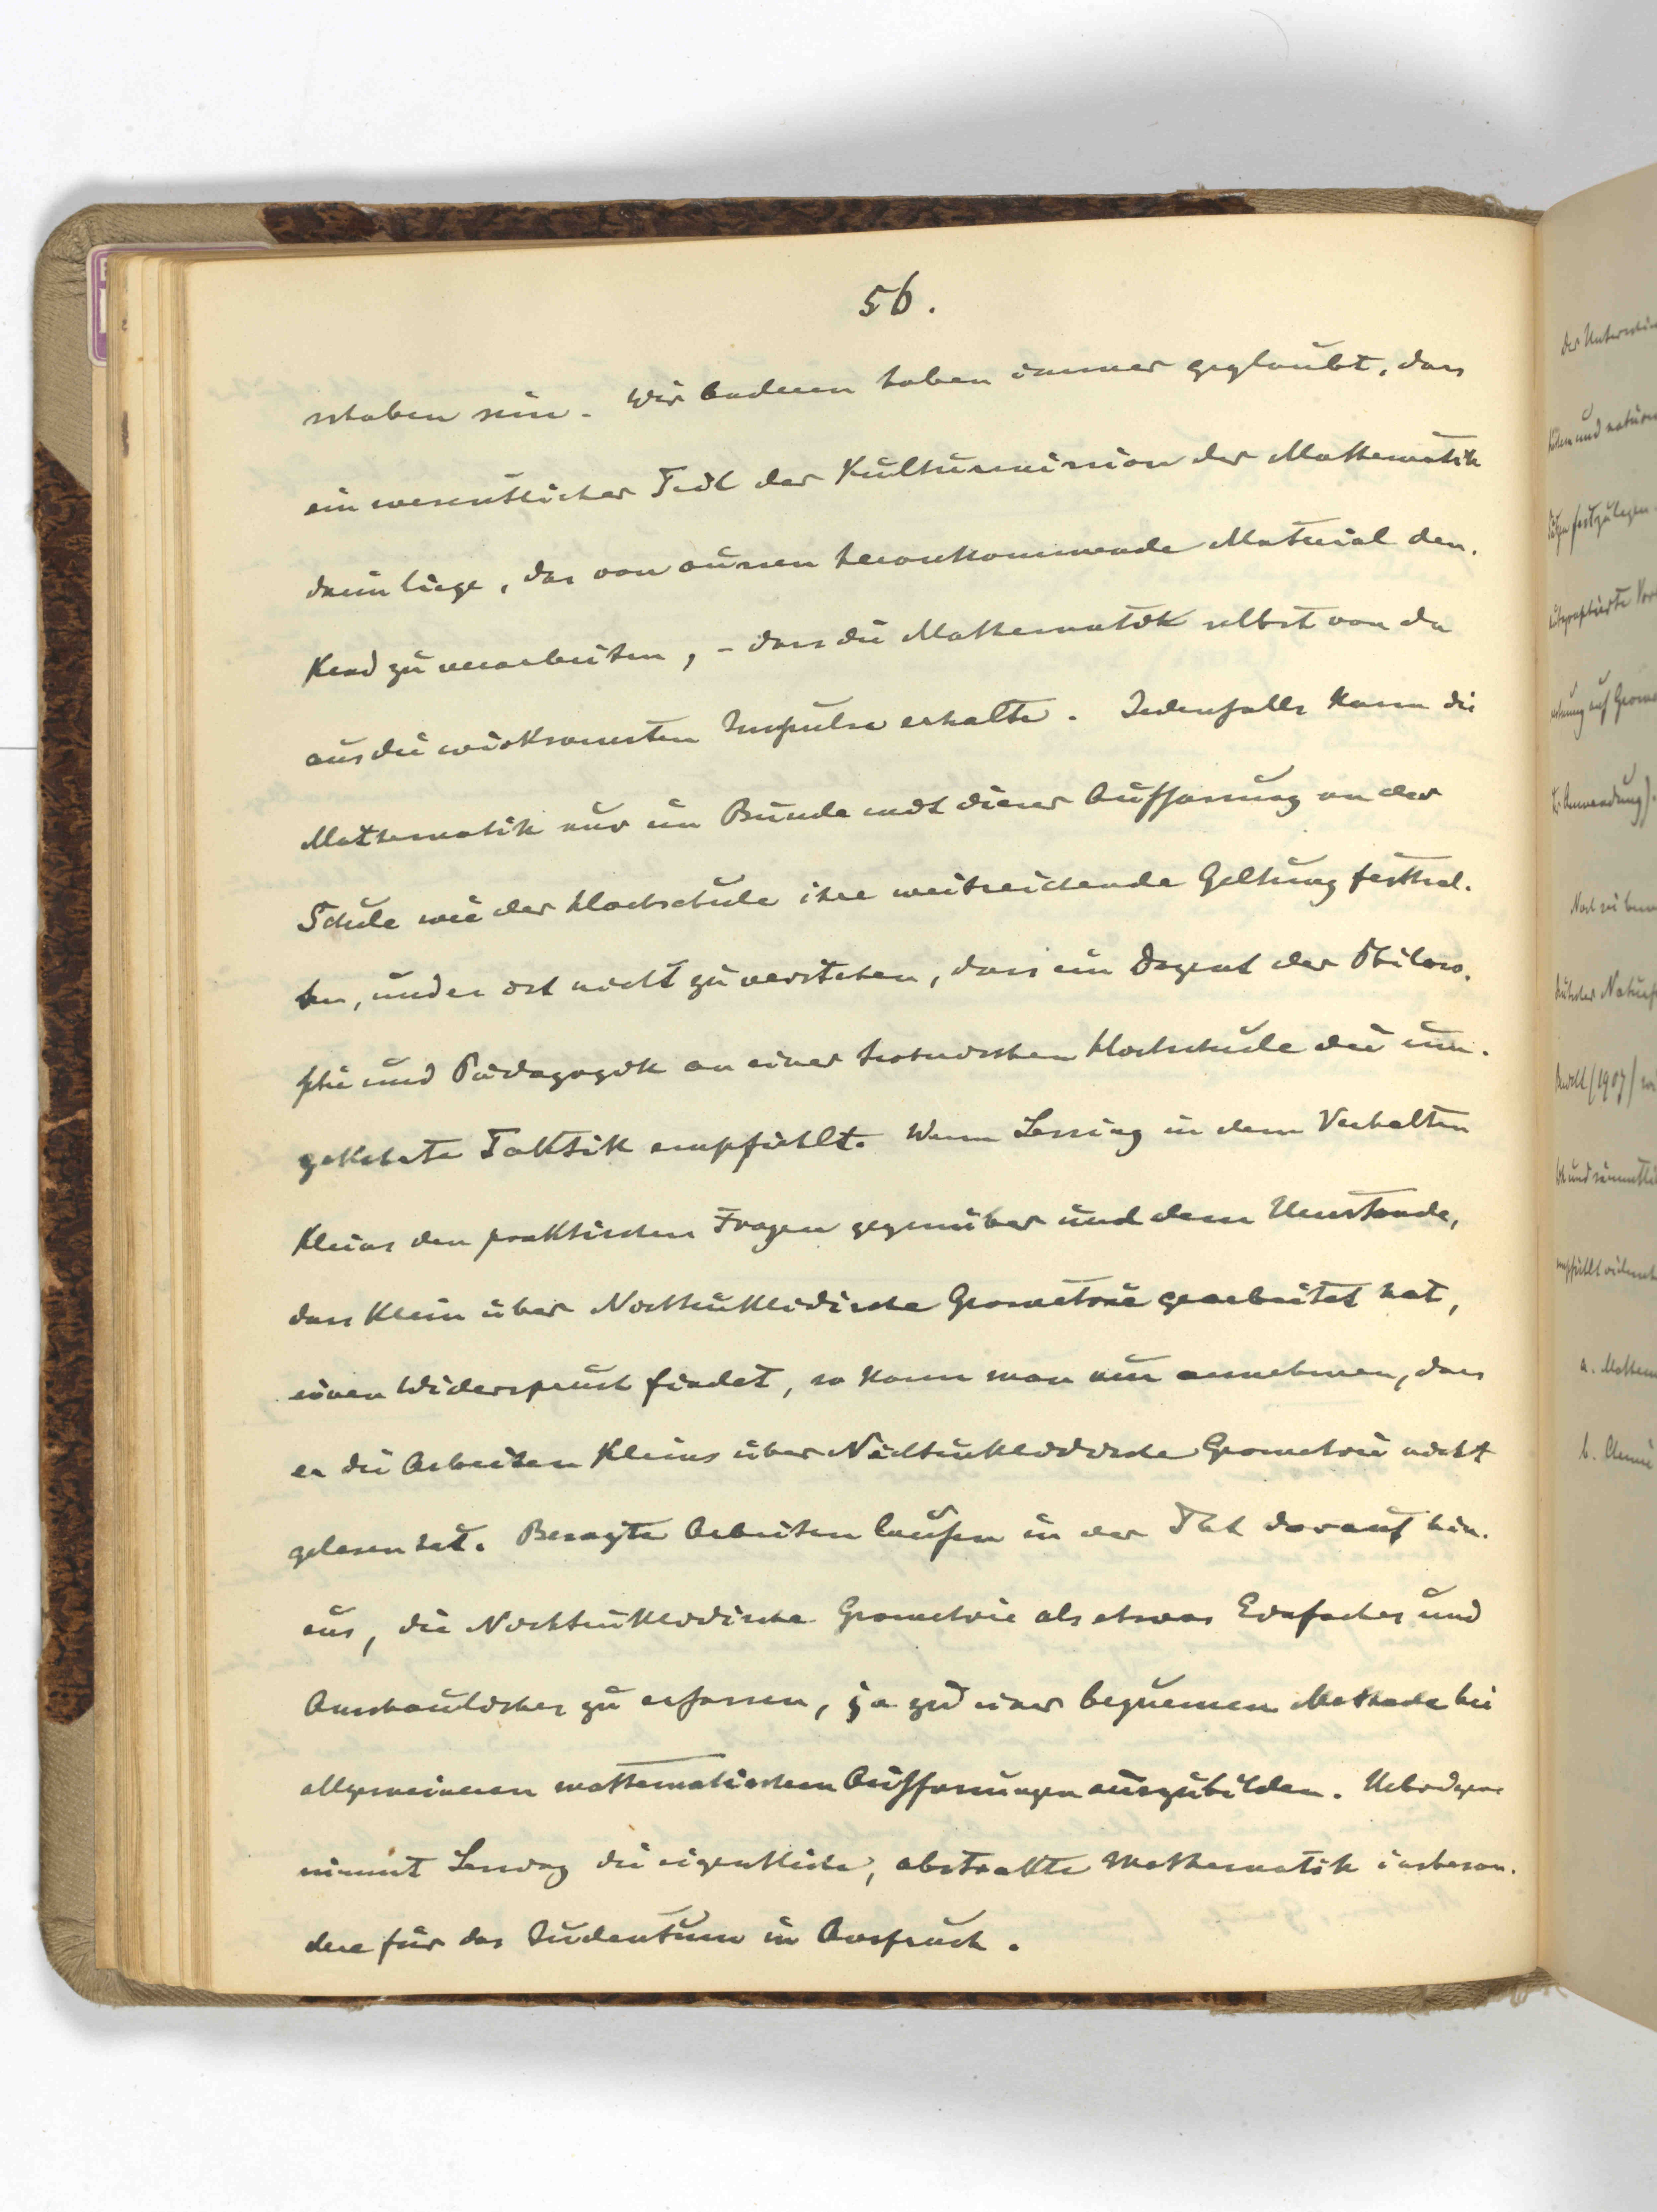 56.
erhaben sein. Wir anderen haben immer geglaubt, dass
ein wesentlicher Teil der Kulturmission der Mathematik
darin liege, das von aussen herankommende Material den-
kend zu verarbeiten, - dass die Mathematik selbst von da
aus die wirksamsten Impulse erhalte. Jedenfalls kann die
Mathematik nur im Bunde mit dieser Auffassung an der
Schule wie der Hochschule ihre weitreichende Geltung festhal-
ten, und es ist nicht zu verstehen, dass ein Dozent der Philoso-
phie und Pädagogik an einer technischen Hochschule die um-
gekehrte Taktik empfiehlt. Wenn Lessing in dem Verhalten
Kleins den praktischen Fragen gegenüber und dem Umstande,
dass Klein über Nichteuklidische Geometrie gearbeitet hat,
einen Widerspruch findet, so kann man nur annehmen, dass
er die Arbeiten Kleins über Nichteuklidische Geometrie nicht
gelesen hat. Besagte Arbeiten laufen in der That darauf hin-
aus, die Nichteuklidische Geometrie als etwas Einfaches und
Anschauliches zu erfassen, ja zu einer bequemen Methode bei
allgemeineren mathematischen Auffassungen auszubilden. Uebrigens
nimmt Lessing die eigentliche, abstrakte Mathematik insbeson-
dere für das Judentum in Anspruch.
der
und
festzulegen
auf
Anwendung).
Noch zu
(1907)
und
empfiehlt
a.
b.